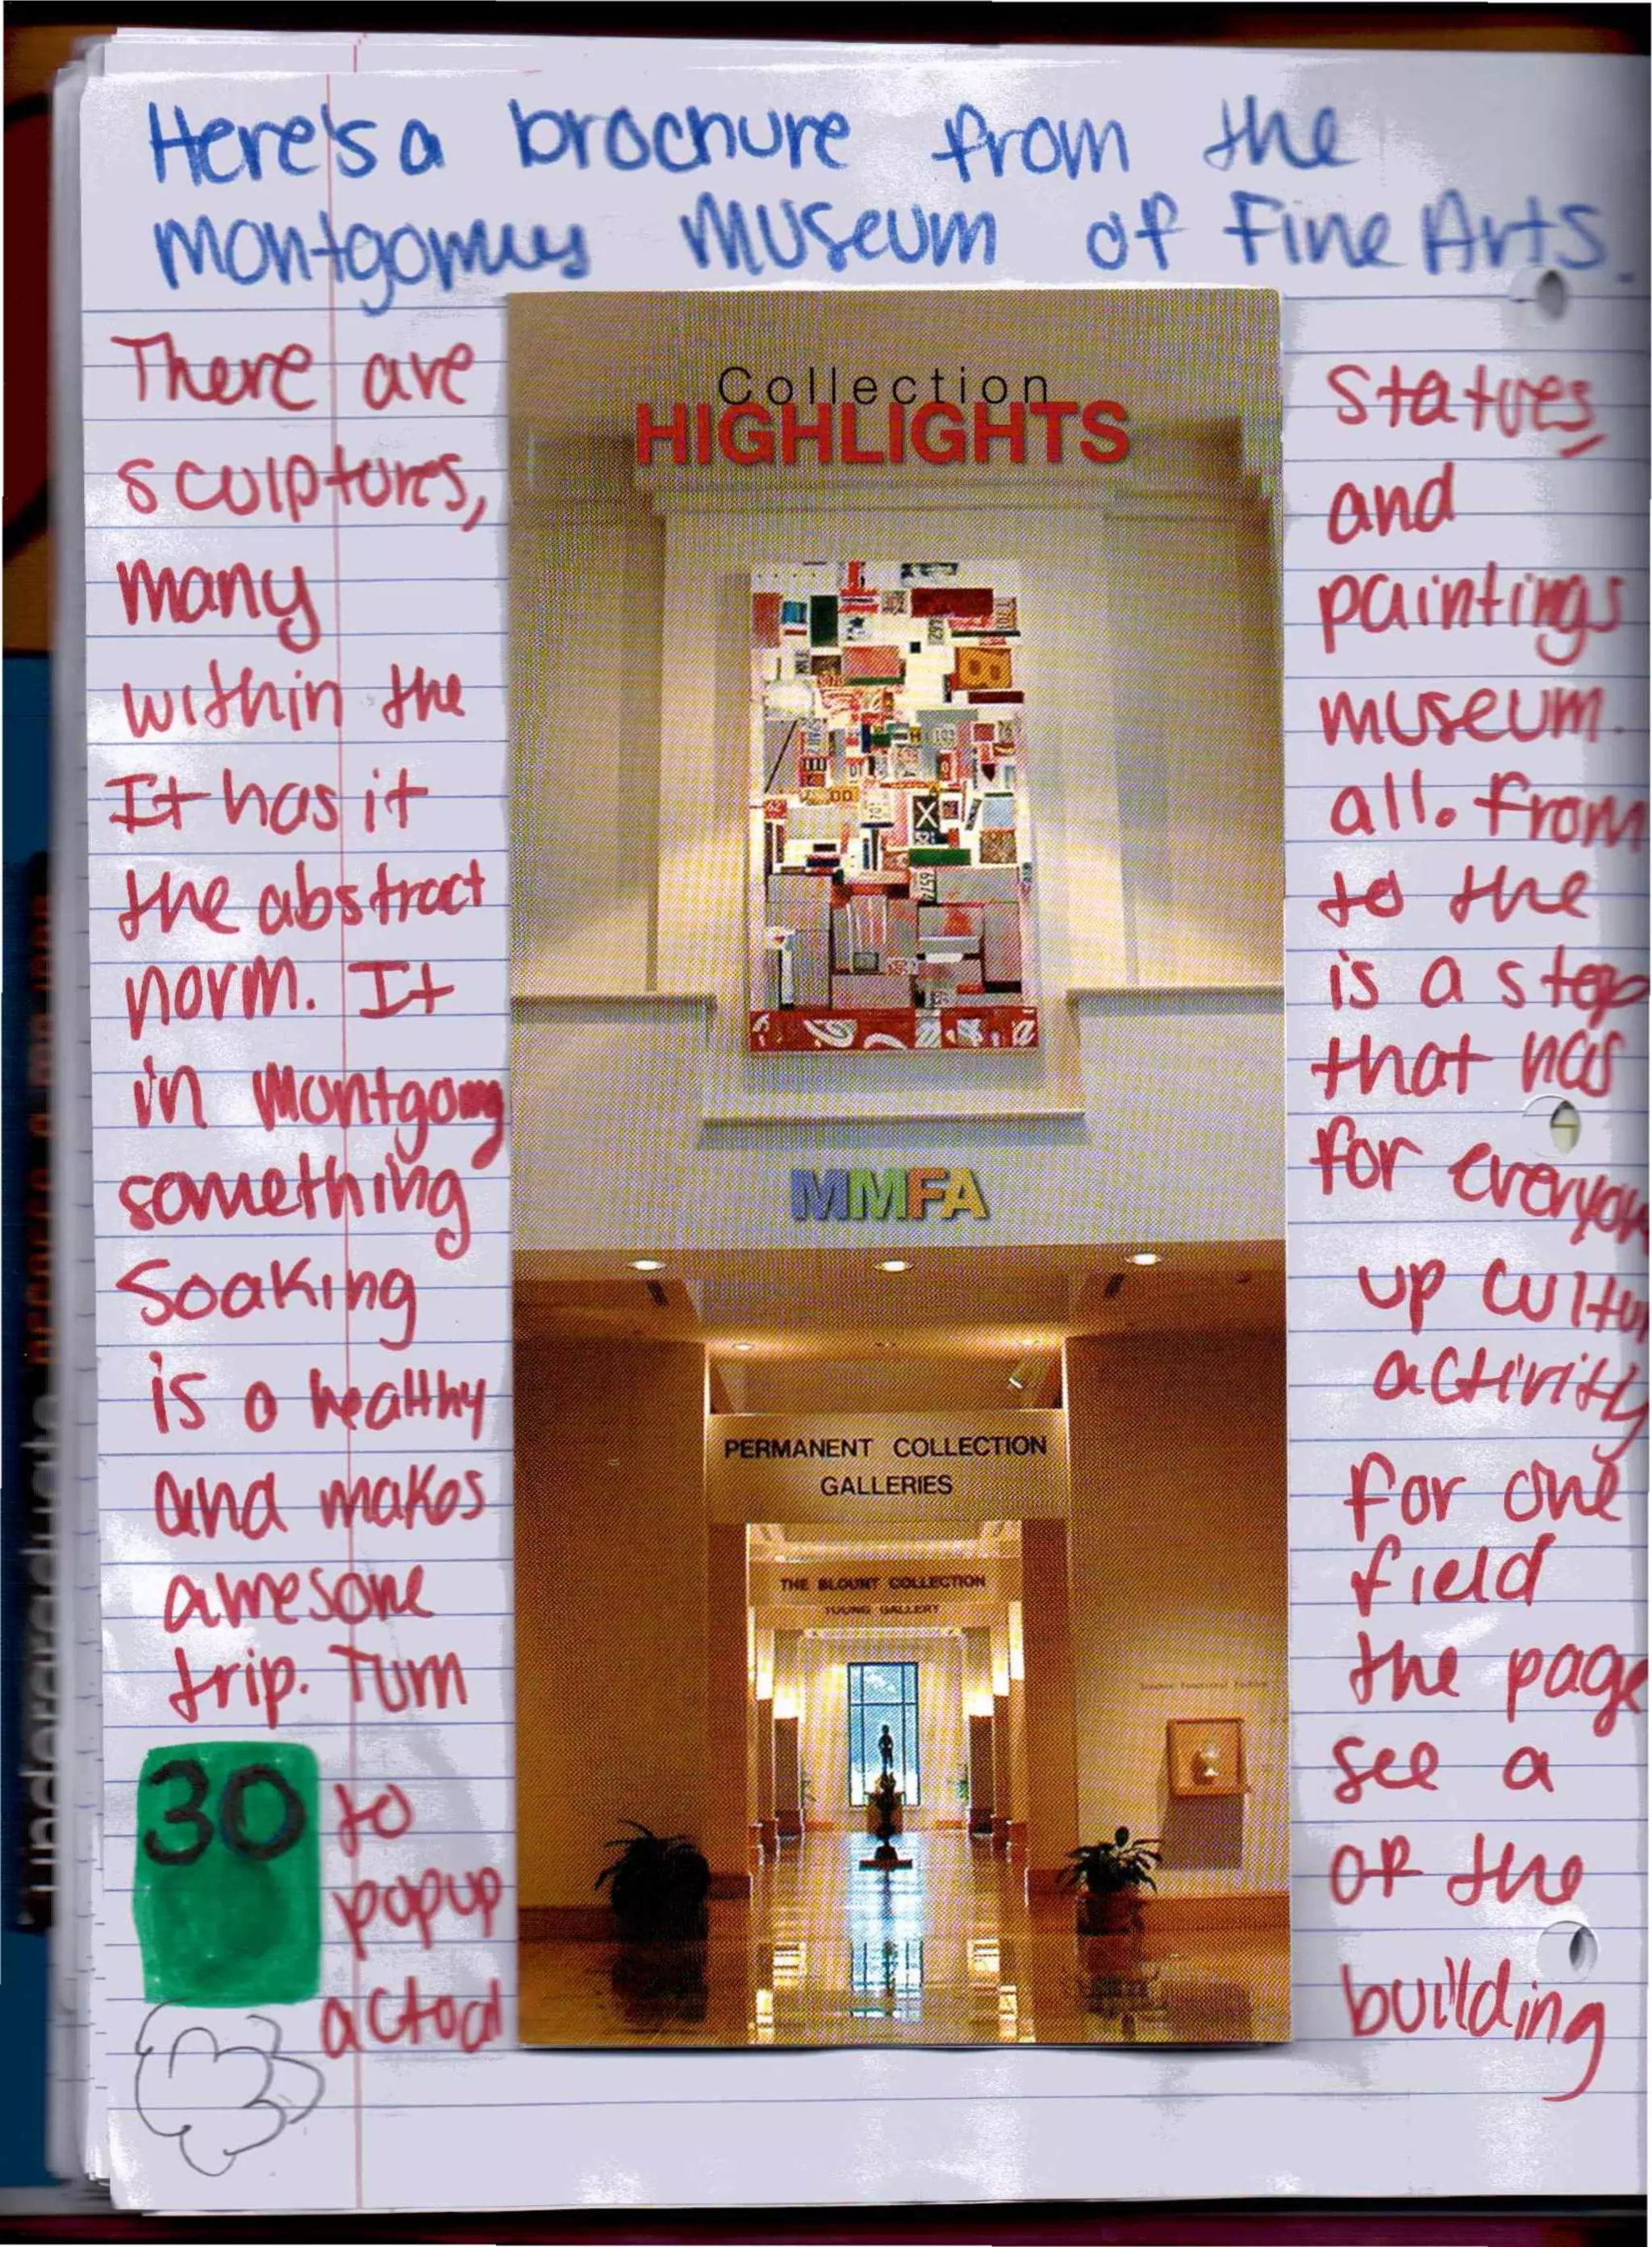 Here's a brochure from the
Montgomery Museum of Fine Arts.
There are statues,
sculptures, and
many paintings
within the museum.
It has it all. From
the abstract to the
norm. It is a stop
in Montgomy that has
something for everyon
Soaking up cultur
is a healthy activity
and makes for one
awesome field
trip. Turn the page
to see a
popup of the
actual building
30
Collection
HIGHLIGHTS
MMFA
PERMANENT COLLECTION
GALLERIES
THE BLOUNT COLLECTION
YOUNG GALLERY